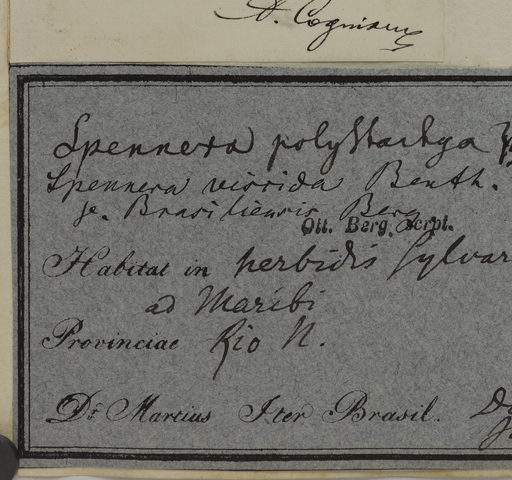 A. Cogniaux
Spennera polystachya
Spennera viscida Benth.
β. Brasiliensis Berg
Ott. Berg. scrpt.
Habitat in herbidis sylvar
ad Maribi
Provinciae Rio N.
Dr. Martius Iter Brasil.